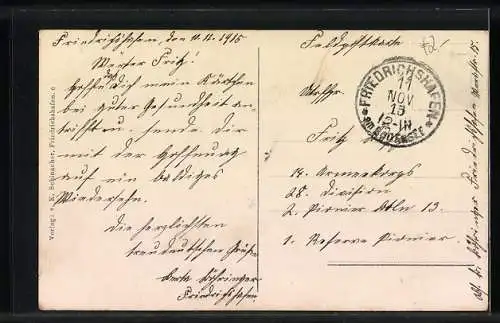 Friedrichshafen, den 11.11.1915
Werter Fritz!
Hoffe daß Dich mein Kärtchen
bei guter Gesundheit an-
trifft u. sende Dir
mit der Hoffnung
auf ein baldiges
Wiedersehn.
die herzlichsten
treudeutschen Grüße
Friedrichshafen
Verlag: K. Schmacher, Friedrichshafen. 6
Feldpostkarte
FRIEDRICHSHAFEN
11
NOV
15
12-1N
am BODENSEE
Fritz
14. Armeekorps
28. Division
2. Pionier Btln 13.
1. Reserve Pionier.